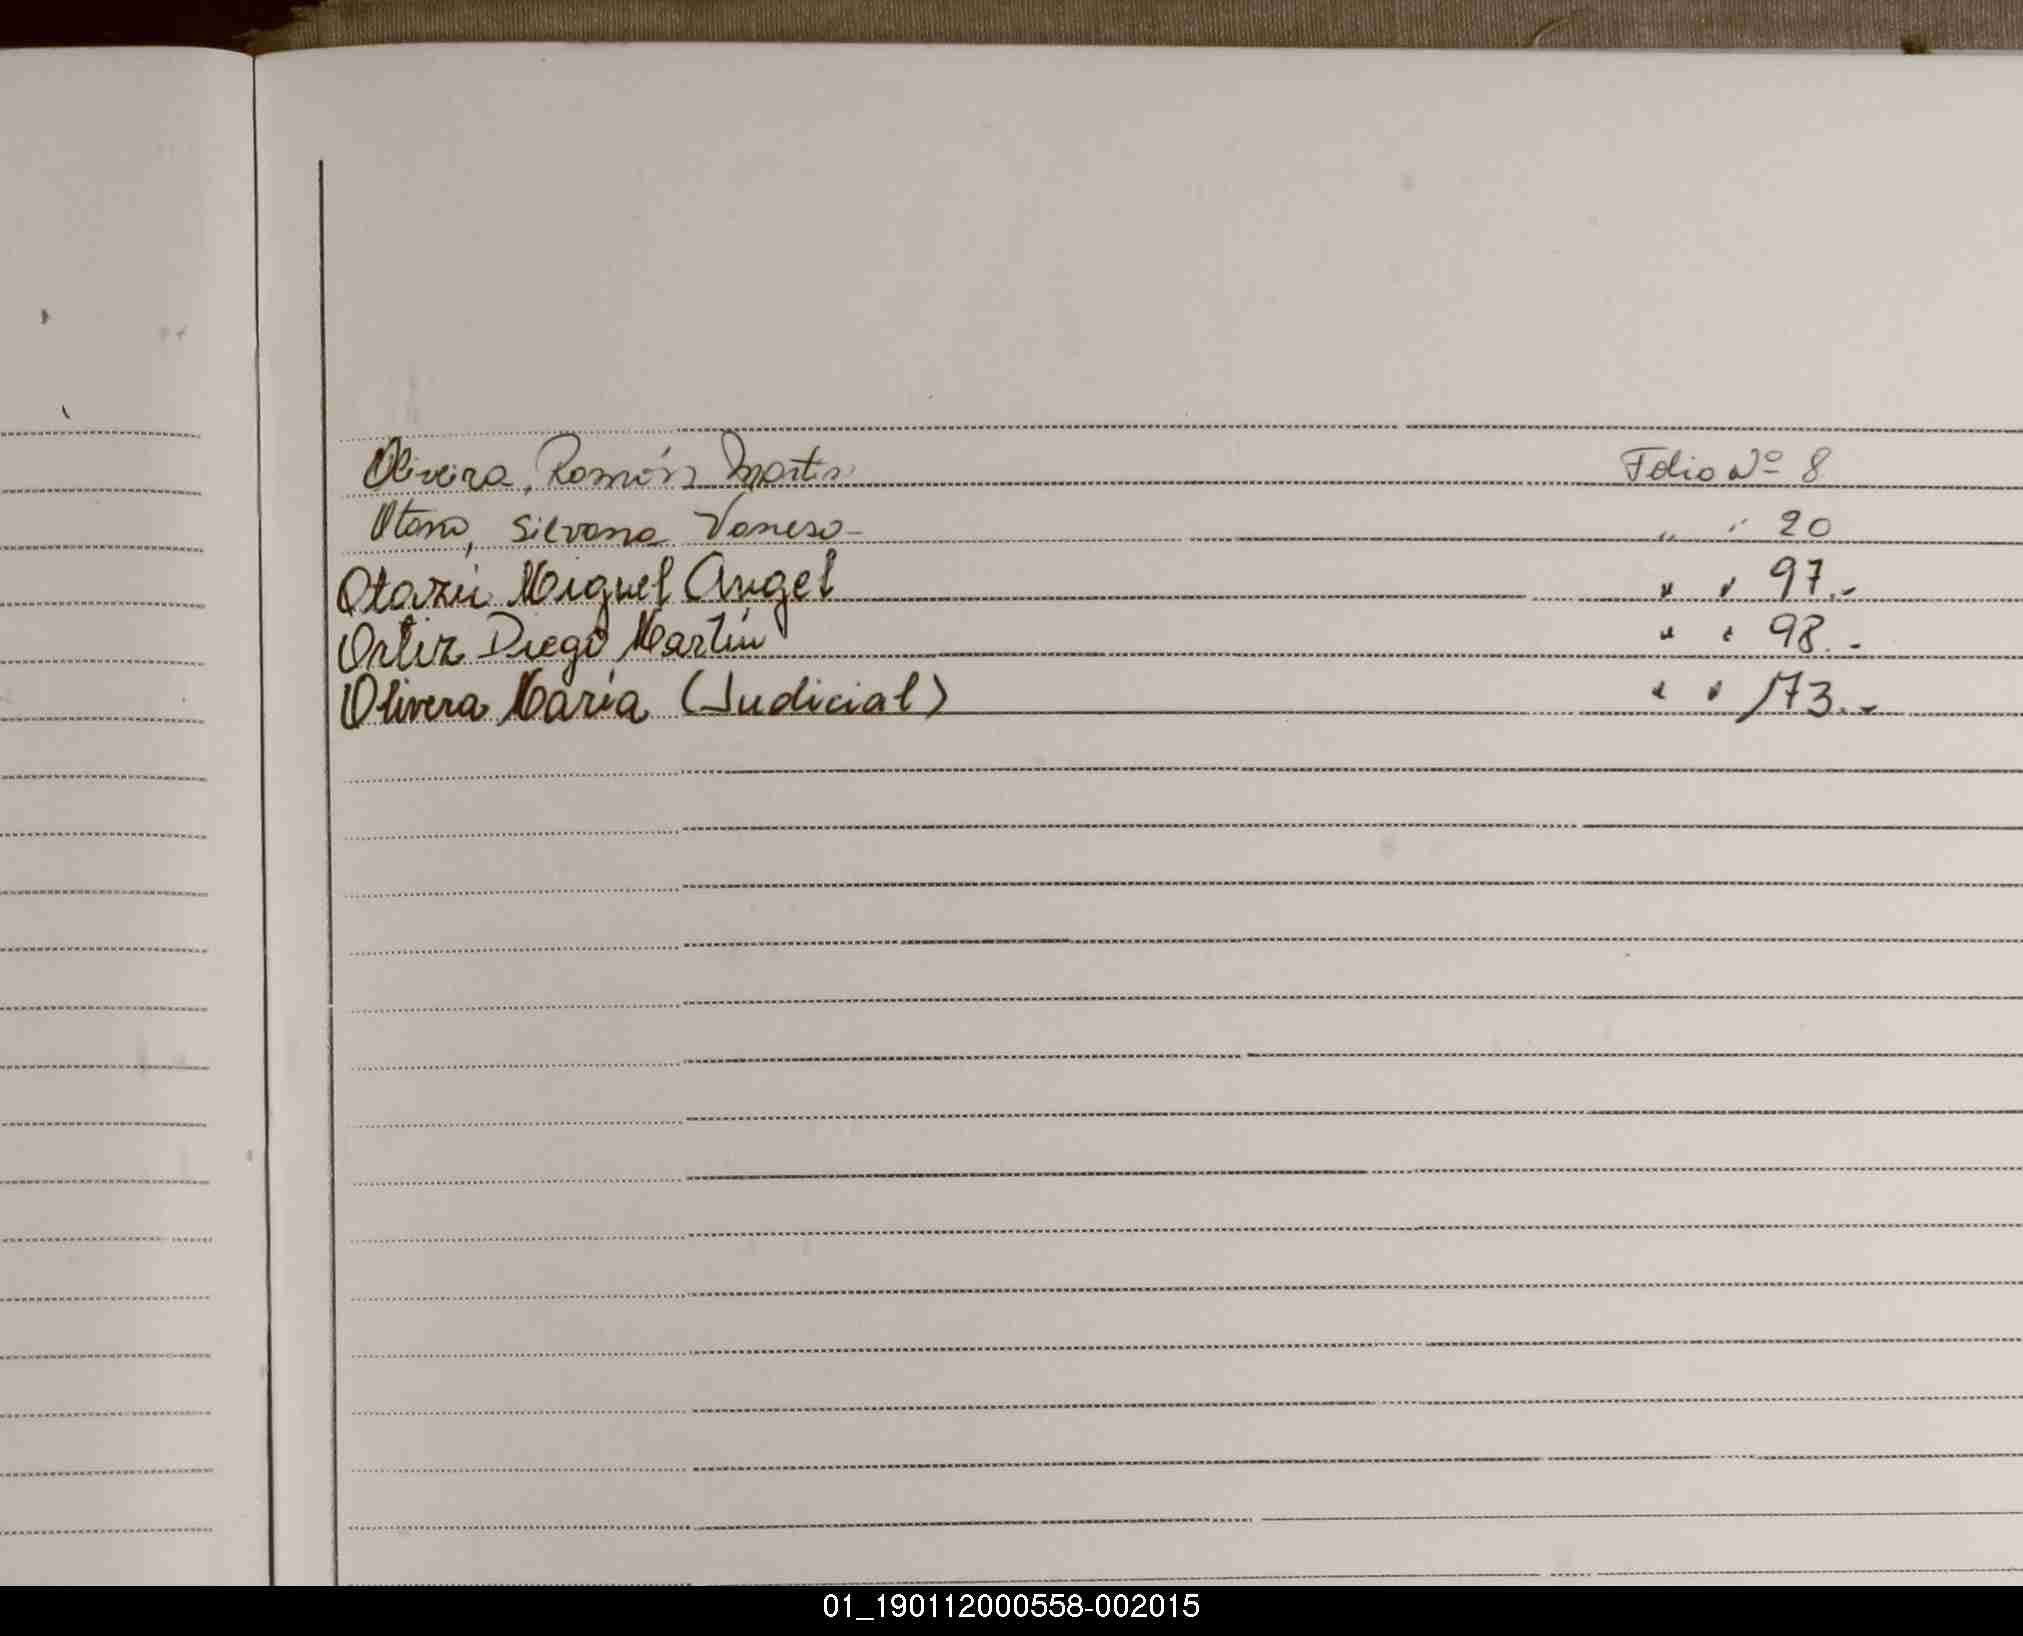 Oliveira, Román Martín Folio Nº 8
Otano, Silvana Vanesa - " " 20
Otazú Miguel Angel " " 97.-
Ortiz Diego Martín " " 98.-
Olivera María (Judicial) " " 173.-
01_190112000558-002015